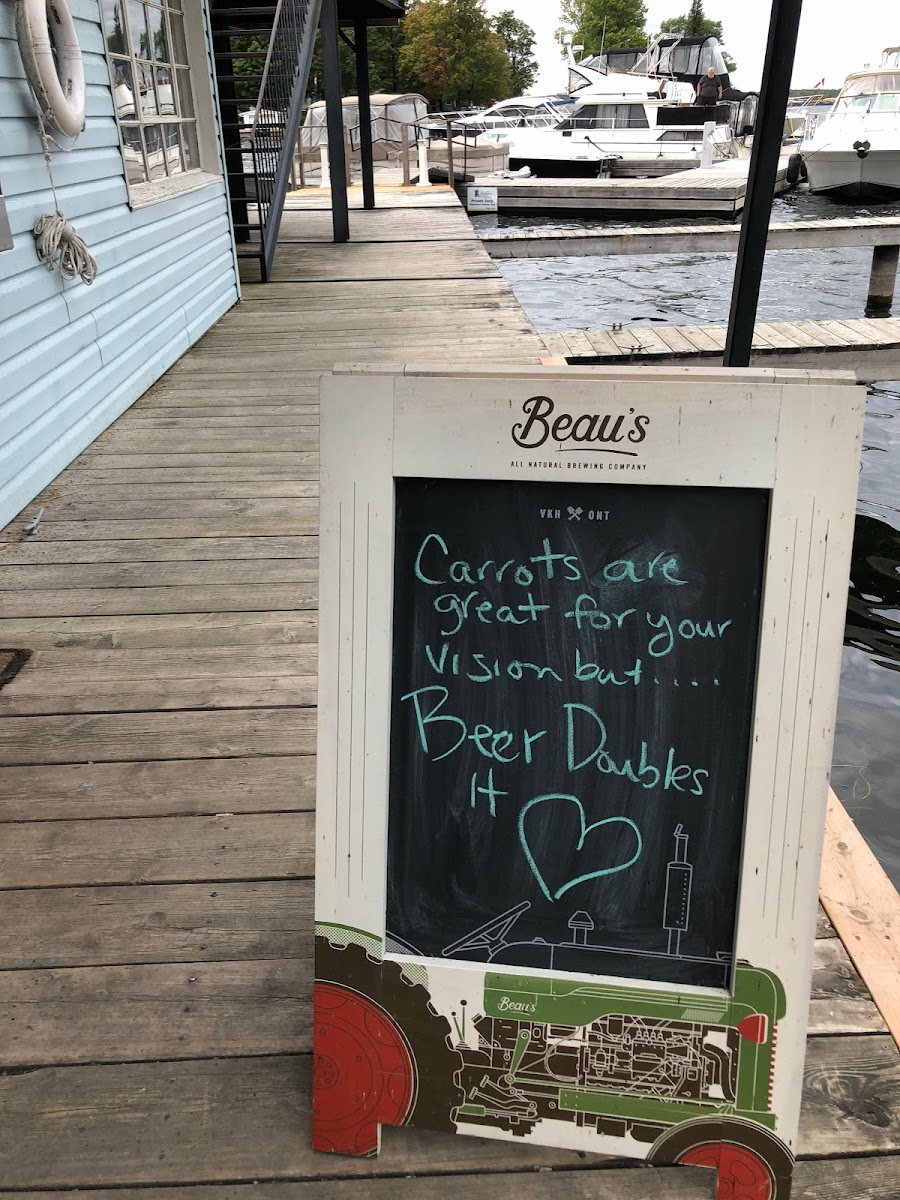 Beau's
ALL NATURAL BREWING COMPANY
VKH ONT
Carrots are
great for your
vision but....
Beer Doubles
It
Beau's